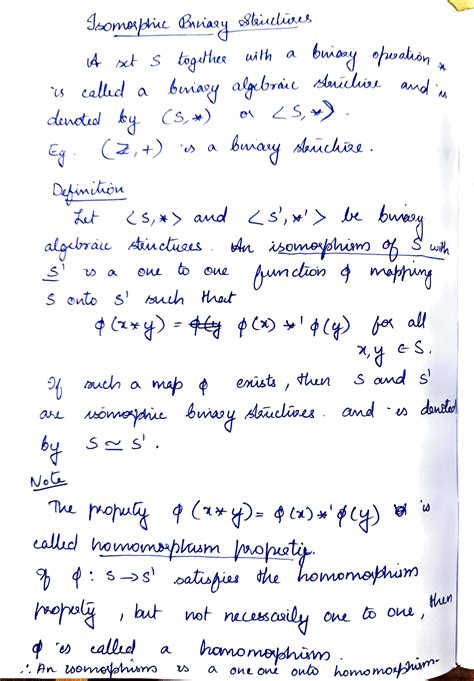 Isomorphic Binary Structures
A set S together with a binary operation *
is called a binary algebraic structure and is
denoted by (S,*) or <S,*>.
Eg. (Z,+) is a binary structure.
Definition
Let <S,*> and <S',*'> be binary
algebraic structures. An isomorphism of S with
S' is a one to one function ϕ mapping
S onto S' such that
ϕ(x*y) = ϕ(x) *' ϕ(y) for all
x,y ∈ S.
If such a map ϕ exists, then S and S'
are isomorphic binary structures. and is denoted
by S ≃ S'.
Note
The property ϕ(x*y) = ϕ(x) *' ϕ(y) is
called homomorphism property.
If ϕ : S → S' satisfies the homomorphism
property, but not necessarily one to one, then
ϕ is called a homomorphism.
∴ An isomorphism is a one one onto homomorphism.